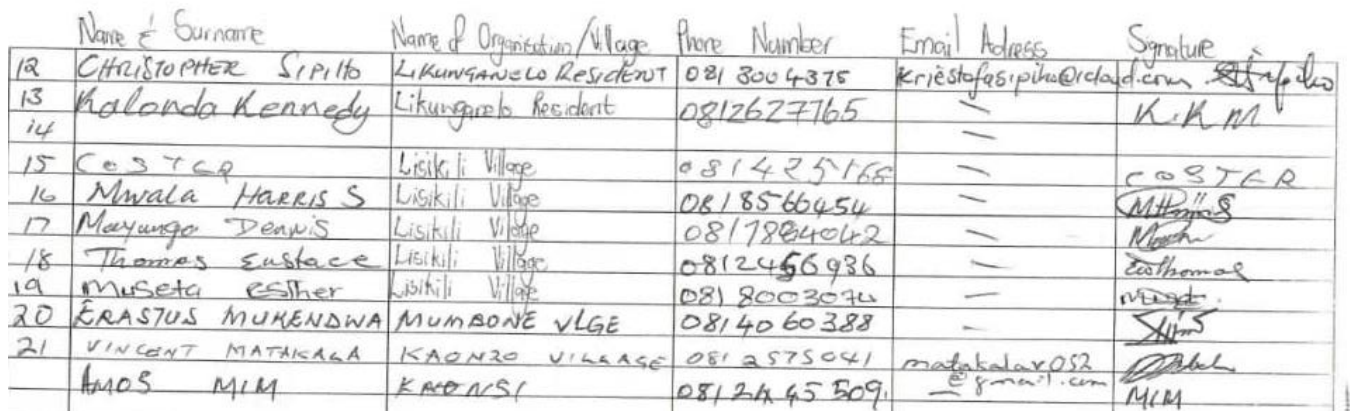 Name & Surname Name of Organisation/Village Phone Number Email Adress Signature
12 CHRISTOPHER SIPIHO LIKUNGANELO RESIDENT 081 8004375 kriestofasipiho@icloud.com
13 Kalonda Kennedy Likunganelo Resident 0812627765 — K.K M
14 —
15 COSTER Lisikili Village 081425168 — COSTER
16 Mwala HARRIS S Lisikili Village 0818566454 —
17 Mayungo Dennis Lisikili Village 0817884042 —
18 Thomas Eustace Lisikili Village 0812456936 — EusThomas
19 Museta Esther Lisikili Village 081 8003074 —
20 ERASTUS MUKENDWA MUMBONE VLGE 0814060388 -
21 VINCENT MATAKALA KAONZO VILLAGE 0812575041 matakalav052
@gmail.com
AMOS MIM KAONSI 0812445509 — MIM